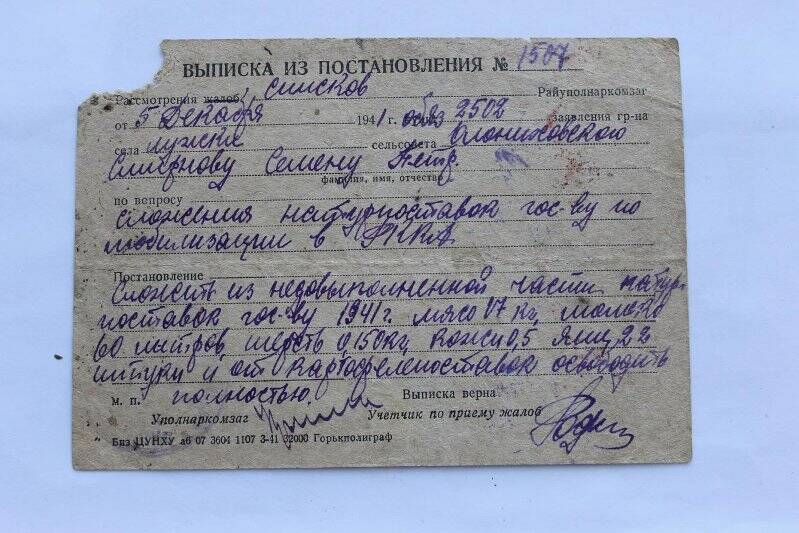 ВЫПИСКА ИЗ ПОСТАНОВЛЕНИЯ № 1507
Рассмотрения жалоб, списков Райуполнаркомзаг
от 5 Декабря 1941 г. обяз 2502 заявления гр-на
села сельсовета
Смирнову Семену Петр.
фамилия, имя, отчество
по вопросу
сложения натурпоставок гос-ву по
мобилизации в РККА
Постановление
Сложить из недовыполненной части натур
поставок гос-ву 1941 г. мясо 17 кг, молоко
60 литров, шерсть 0,150 кг, кожи 0,5 Яиц 22
штуки и от картофелепоставок освободить
м. п. полностью. Выписка верна
Уполнаркомзаг Учетчик по приему жалоб
Биз ЦУНХУ аб 07 3604 1107 3-41 32000 Горькполиграф